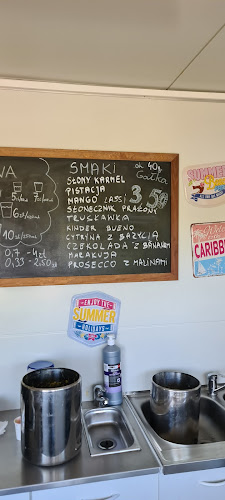 SMAKI
od 40g
Gałka
3,50
SŁONY KARMEL
PISTACJA
MANGO
SŁONECZNIK PRAŻONY
TRUSKAWKA
KINDER BUENO
CYTRYNA Z BAZYLIĄ
CZEKOLADA Z BANANEM
MARAKUJA
PROSECCO Z MALINAMI
WA
0,7 - 4zł
0,33 - 2,50zł
SUMMER
CARIBB
ENJOY THE
SUMMER
HOLIDAYS